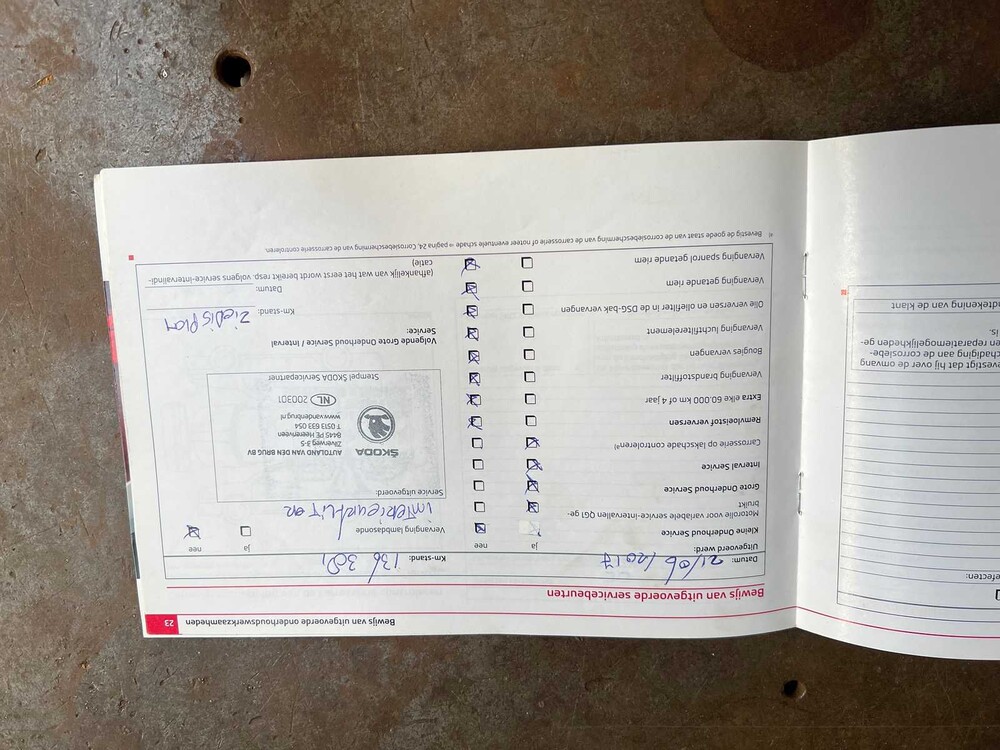 Bewijs van uitgevoerde onderhoudswerkzaamheden 23
Bewijs van uitgevoerde servicebeurten
Datum: 21/06/2017
Km-stand: 136 301
Uitgevoerd werd:
ja nee
Kleine Onderhoud Service
Motorolie voor variabele service-intervallen QG1 ge-
bruikt
Grote Onderhoud Service
Interval Service
Carrosserie op lakschade controleren³⁾
Remvloeistof verversen
Extra elke 60.000 km of 4 jaar
Vervanging brandstoffilter
Bougies vervangen
Vervanging luchtfilterelement
Olie verversen en oliefilter in de DSG-bak vervangen
Vervanging getande riem
Vervanging spanrol getande riem
ja nee
Vervanging lambdasonde
interieurfilter
Service uitgevoerd:
ŠKODA
AUTOLAND VAN DEN BRUG BV
Zilverweg 3-5
8445 PE Heerenveen
T 0513 633 054
www.vandenbrug.nl
NL 200301
Stempel ŠKODA Servicepartner
Volgende Grote Onderhoud Service / Interval
Service:
Km-stand: Zie Display
Datum:
(afhankelijk van wat het eerst wordt bereikt resp. volgens service-intervalindi-
catie)
³⁾ Bevestig de goede staat van de corrosiebescherming van de carrosserie of noteer eventuele schade ⇒ pagina 24, Corrosiebescherming van de carrosserie controleren
efecten:
evestigt dat hij over de omvang
chadiging aan de corrosiebe-
en reparatiemogelijkheden ge-
is.
ndtekening van de klant